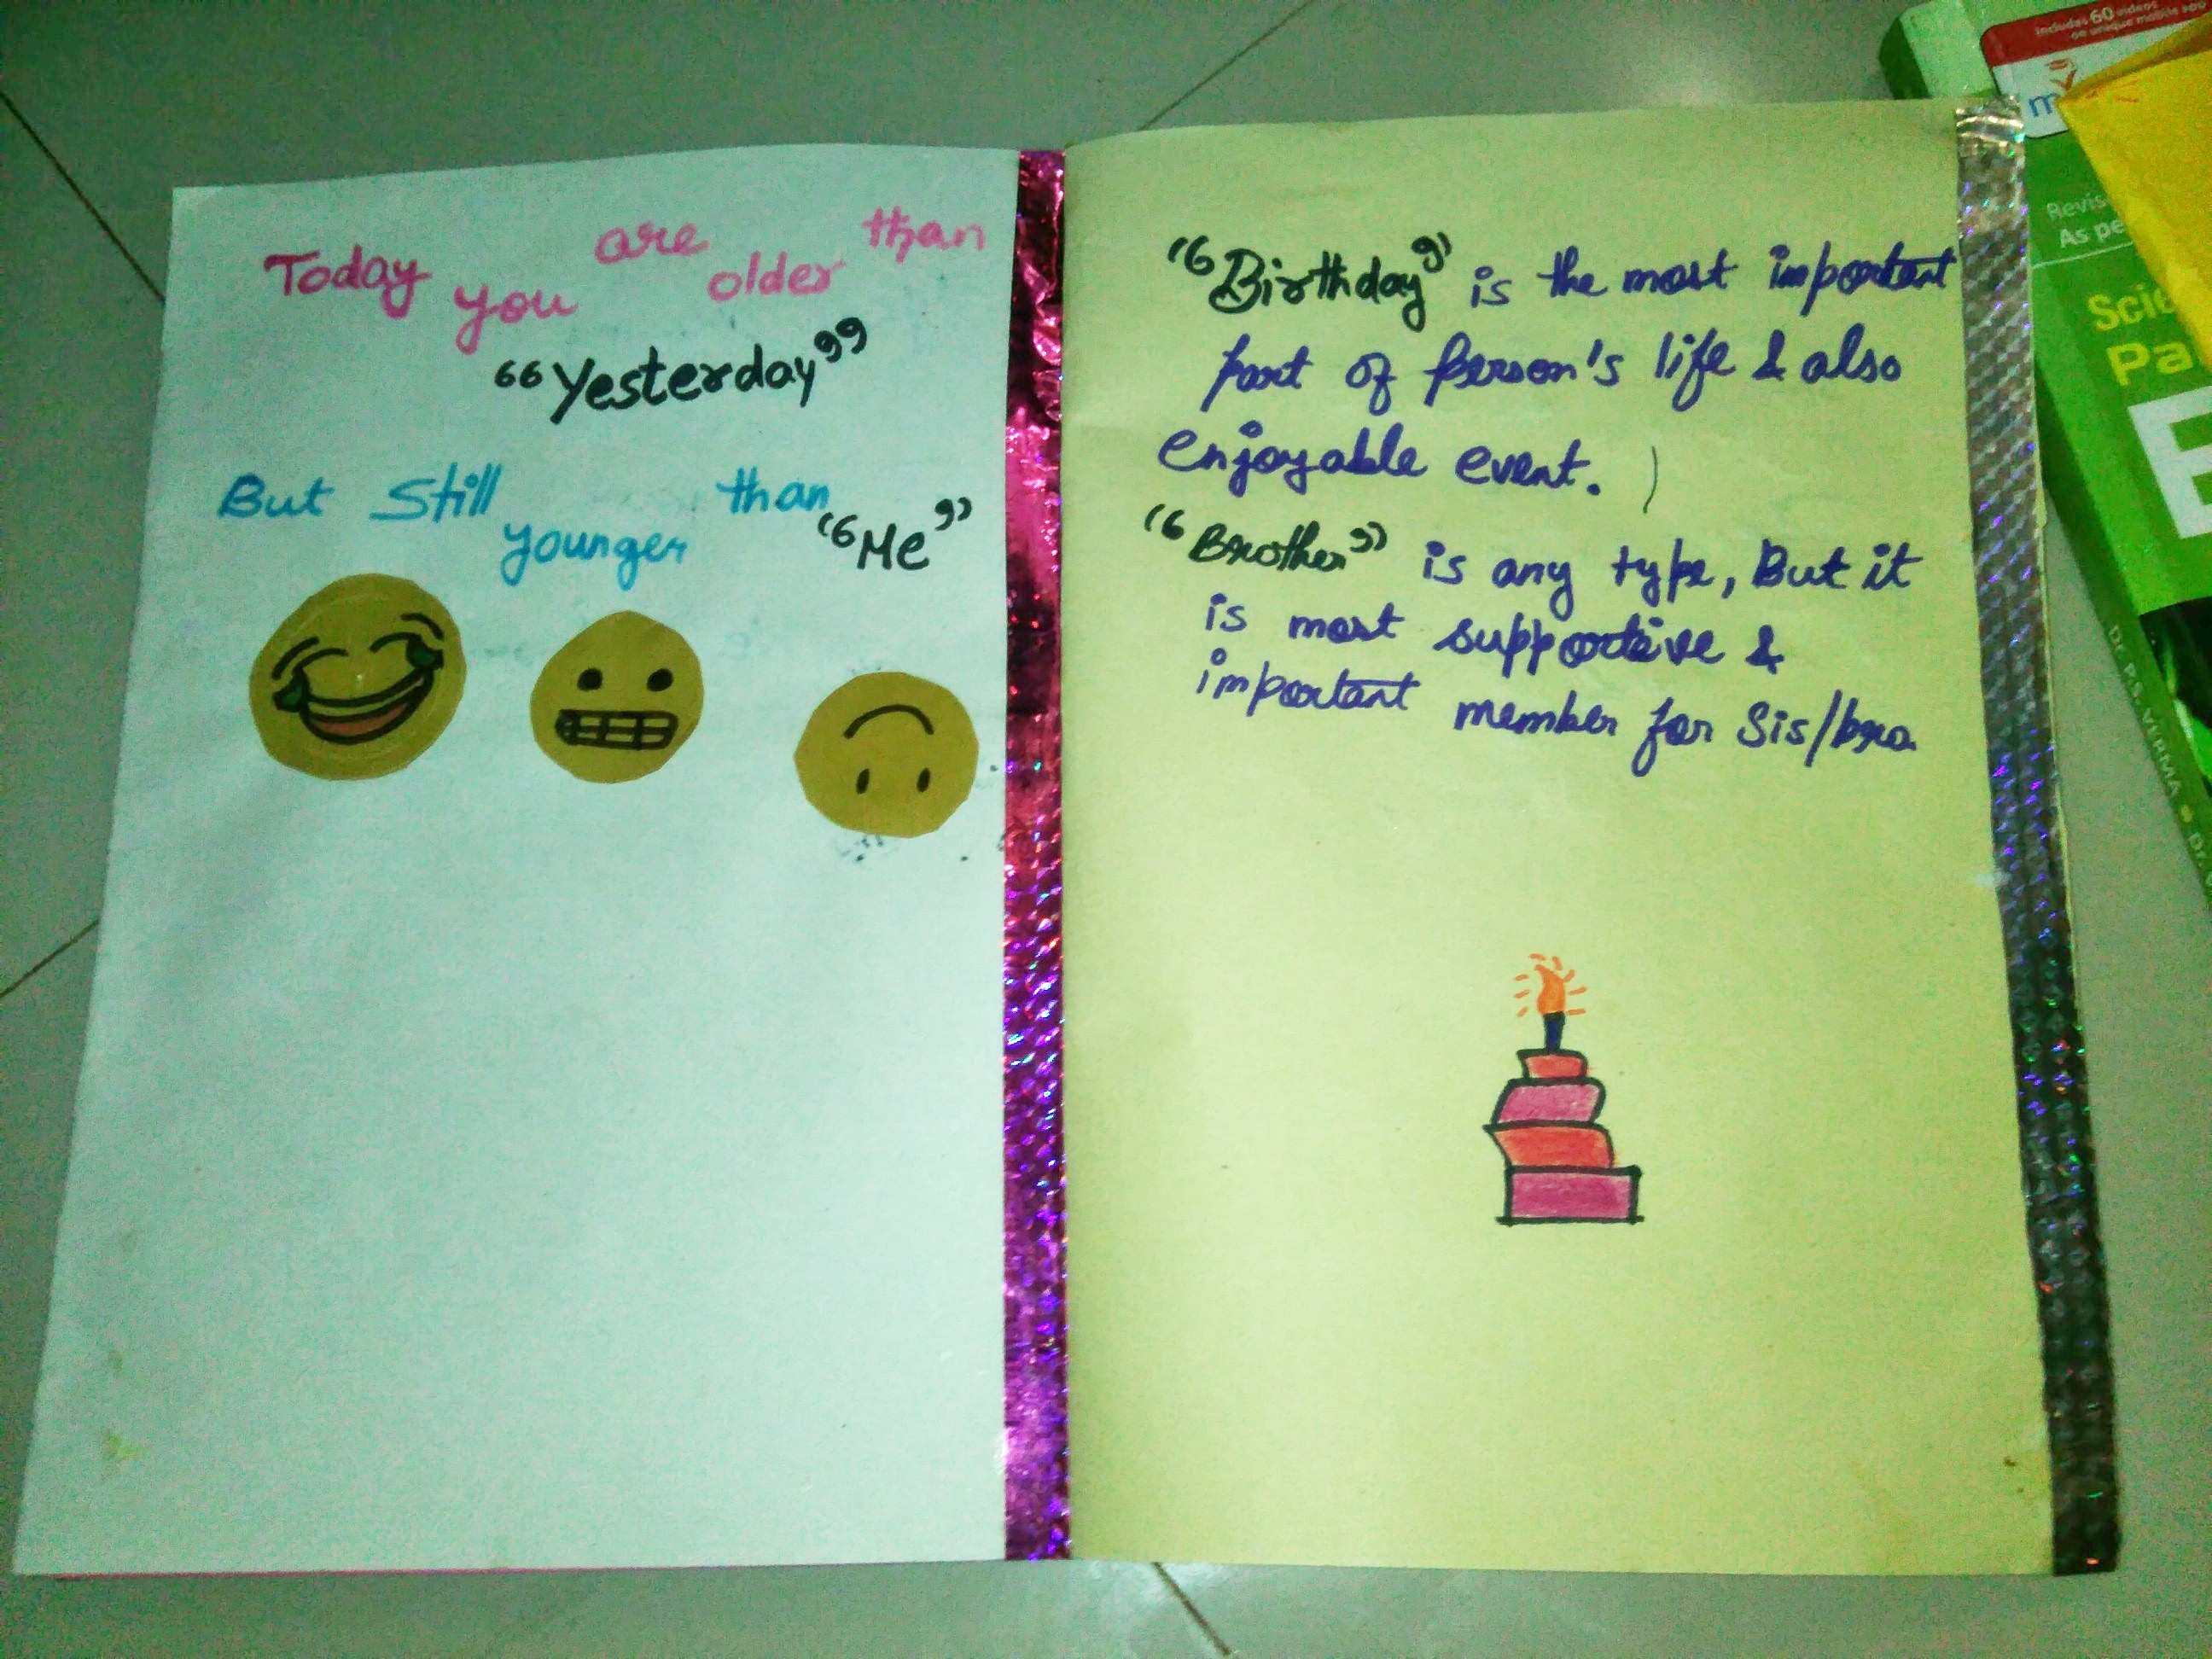 Today you are older than
“Yesterday”
But Still younger than “Me”
“Birthday” is the most important
part of person's life & also
enjoyable event.
“Brother” is any type, But it
is most supportive &
important member for Sis/bro
Includes 60 videos
on unique mobile app
Scie
Pa
As pe
Dr. P.S. VERMA